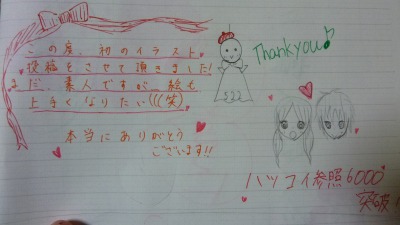 この度、初のイラスト
投稿をさせて頂きました!
まだ、素人ですが…絵も
上手くなりたい(((笑)
本当にありがとう
ございます!!
Thankyou
522
ハツコイ参照6000
突破!